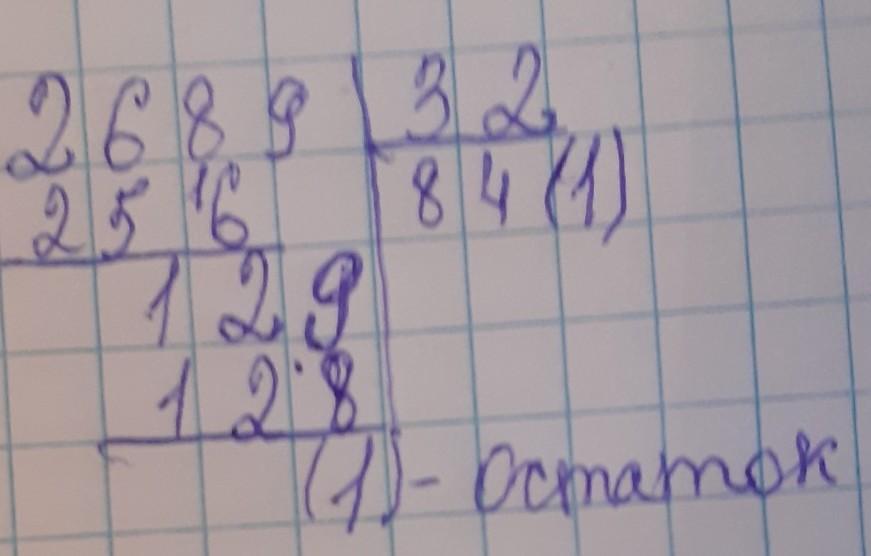 2689 32
256 84(1)
129
128
(1)- Остаток